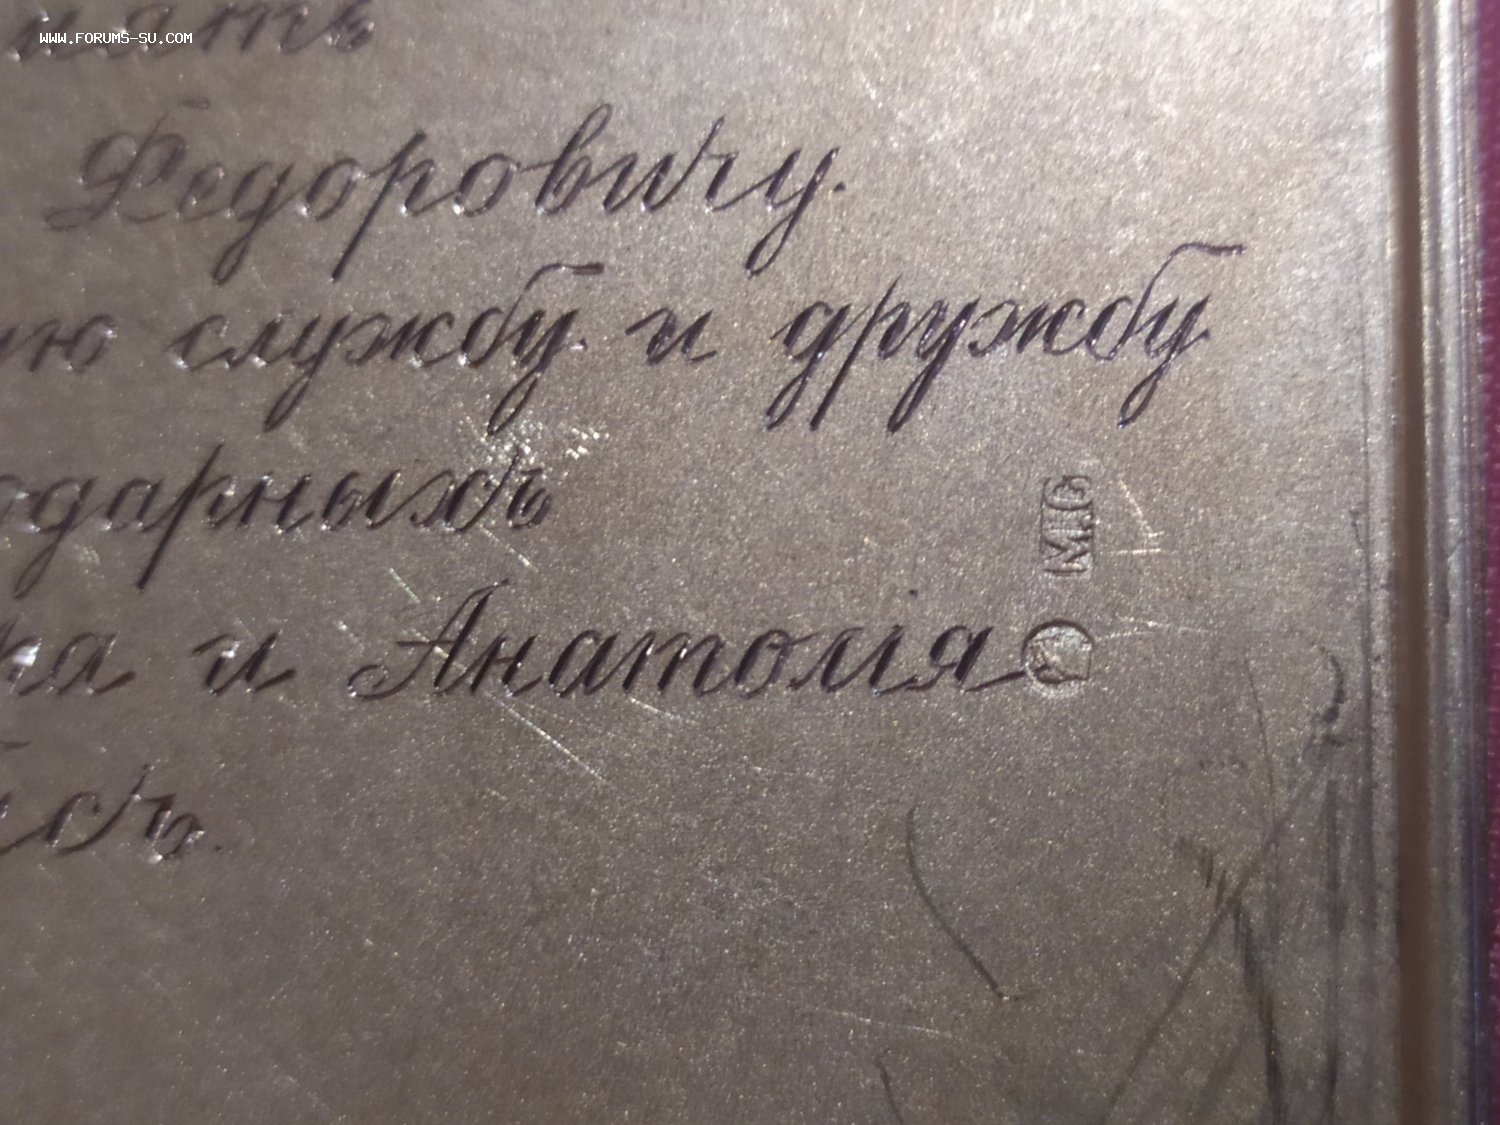 WWW.FORUMS-SU.COM
Федоровичу.
ую службу и дружбу
одарныхъ
М.С
ка и Анатолія